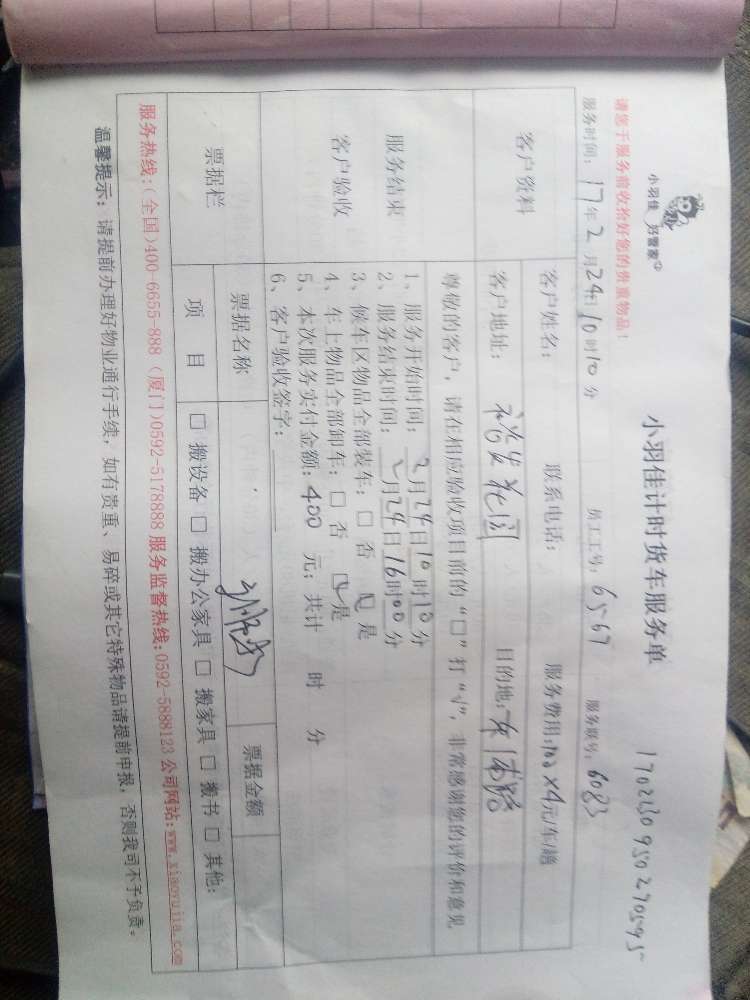 小羽佳 好管家
小羽佳计时货车服务单
170230950270595
请您于服务前收拾好您的贵重物品!
服务时间: 17年2月24日10时10分 员工工号: 6567 服务账号: 6083
客户资料
客户姓名: 联系电话: 服务费用:100×4元/车/趟
客户地址: 裕发花园 目的地:
服务结束
客户验收
尊敬的客户, 请在相应验收项目前的“□”打“√”, 非常感谢您的评价和意见
1、服务开始时间: 2月24日10时10分
2、服务结束时间: 2月24日16时00分
3、候车区物品全部装车: □ 否 ☑ 是
4、车上物品全部卸车: □ 否 ☑ 是
5、本次服务实付金额: 400 元; 共计 时 分
6、客户验收签字:
票据栏
票据名称 票据金额
项 目 □ 搬设备 □ 搬办公家具 □ 搬家具 □ 搬书 □ 其他:
服务热线:(全国)400-6655-888 (厦门)0592-5178888 服务监督热线:0592-5888123 公司网站:www.xiaoyujia.com
温馨提示: 请提前办理好物业通行手续, 如有贵重、易碎或其它特殊物品请提前申报, 否则我司不予负责。